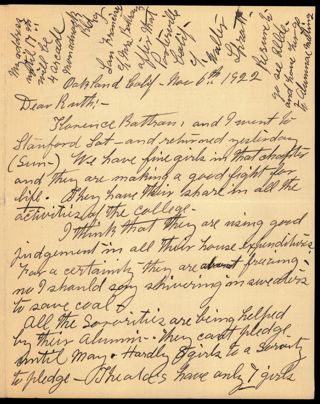 My address
until 17th
will be
4 Carmel
Monadnock
Bldg
San Francisco
after that
Porterville
Calif.
Oakland Calif - Nov 6th 1922
Dear Ruth:-
Florence Battram, and I went to
Stanford Sat - and returned yesterday
(Sun-) We have fine girls in that chapter
and they are making a good fight for
life. They have their share in all the
activities of the college.
I think that they are using good
judgement in all their house expenditures
For a certainty they are about freezing -
no I should say shivering in sweaters
to save coal.
All the Sororities are being helped
by their Alumni - They can't pledge
until May. Hardly 8 girls to a Sorority
to pledge - Thetas have only 7 girls